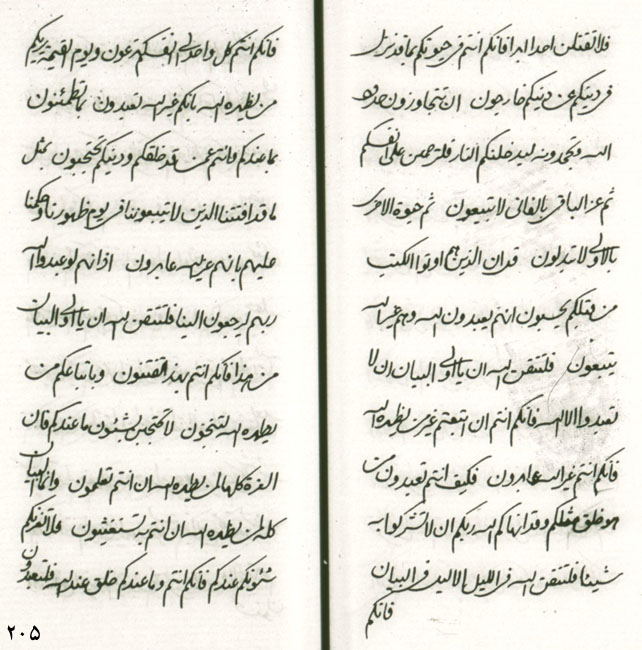 فلا تقتلن احدا ابدا فانكم انتم في حيوتكم بما قد نزل
في دينكم عن دينكم خارجون ان تتجاوزون حدود
الله وتحمدونه ليدخلنكم النار فلترحمن على انفسكم
ثم عز الباقي بالفاني لا تبيعون ثم حيوة الاخرى
بالاولى لا تبدلون قد ان الذين هم اوتوا الكتب
من قبلكم يحسبون انهم يعبدون الله وهم غير الله
يتبعون فلتتقن الله ان يا اولى البيان ان لا
تعبدوا الا الله فانكم انتم ان اتبعتم غير من يظهره الله
فانكم انتم غير الله عابدون فكيف انتم تعبدون من
هو خلق مثلكم وقد انهاكم الله ربكم ان لا تشركوا به
شيئا فلتتقن الله في الليل الاليل في البيان
فانكم
فانكم انتم كل واحد لى انفسكم تدعون ويوم القيمة بربكم
من يظهره الله بانكم غير الله تعبدون بما تطمئنون
بما عندكم وانتم عمن قد خلقكم ودينكم تحتجبون بمثل
ما قد افتتنا الذين لا تبيعوننا في يوم ظهورنا وحكمنا
عليهم بانهم غير الله عابدون اذ انهم لو عبدوا الله
ربهم ليرجعون الينا فلتتقن الله ان يا اولى البيان
من هذا فانكم انتم بهذا تفتنون وباتباعكم من
يظهره الله لتنجون لا تحتجبن بشئون ما عندكم فان
العزة كلها لمن يظهره الله ان انتم تعلمون وانما البيان
كله لمن يظهره الله ان انتم به تستغيثون فلا تغرنكم
شئونكم عندكم فانكم انتم وما عندكم خلق عند الله فلتعبدون
٢٠٥